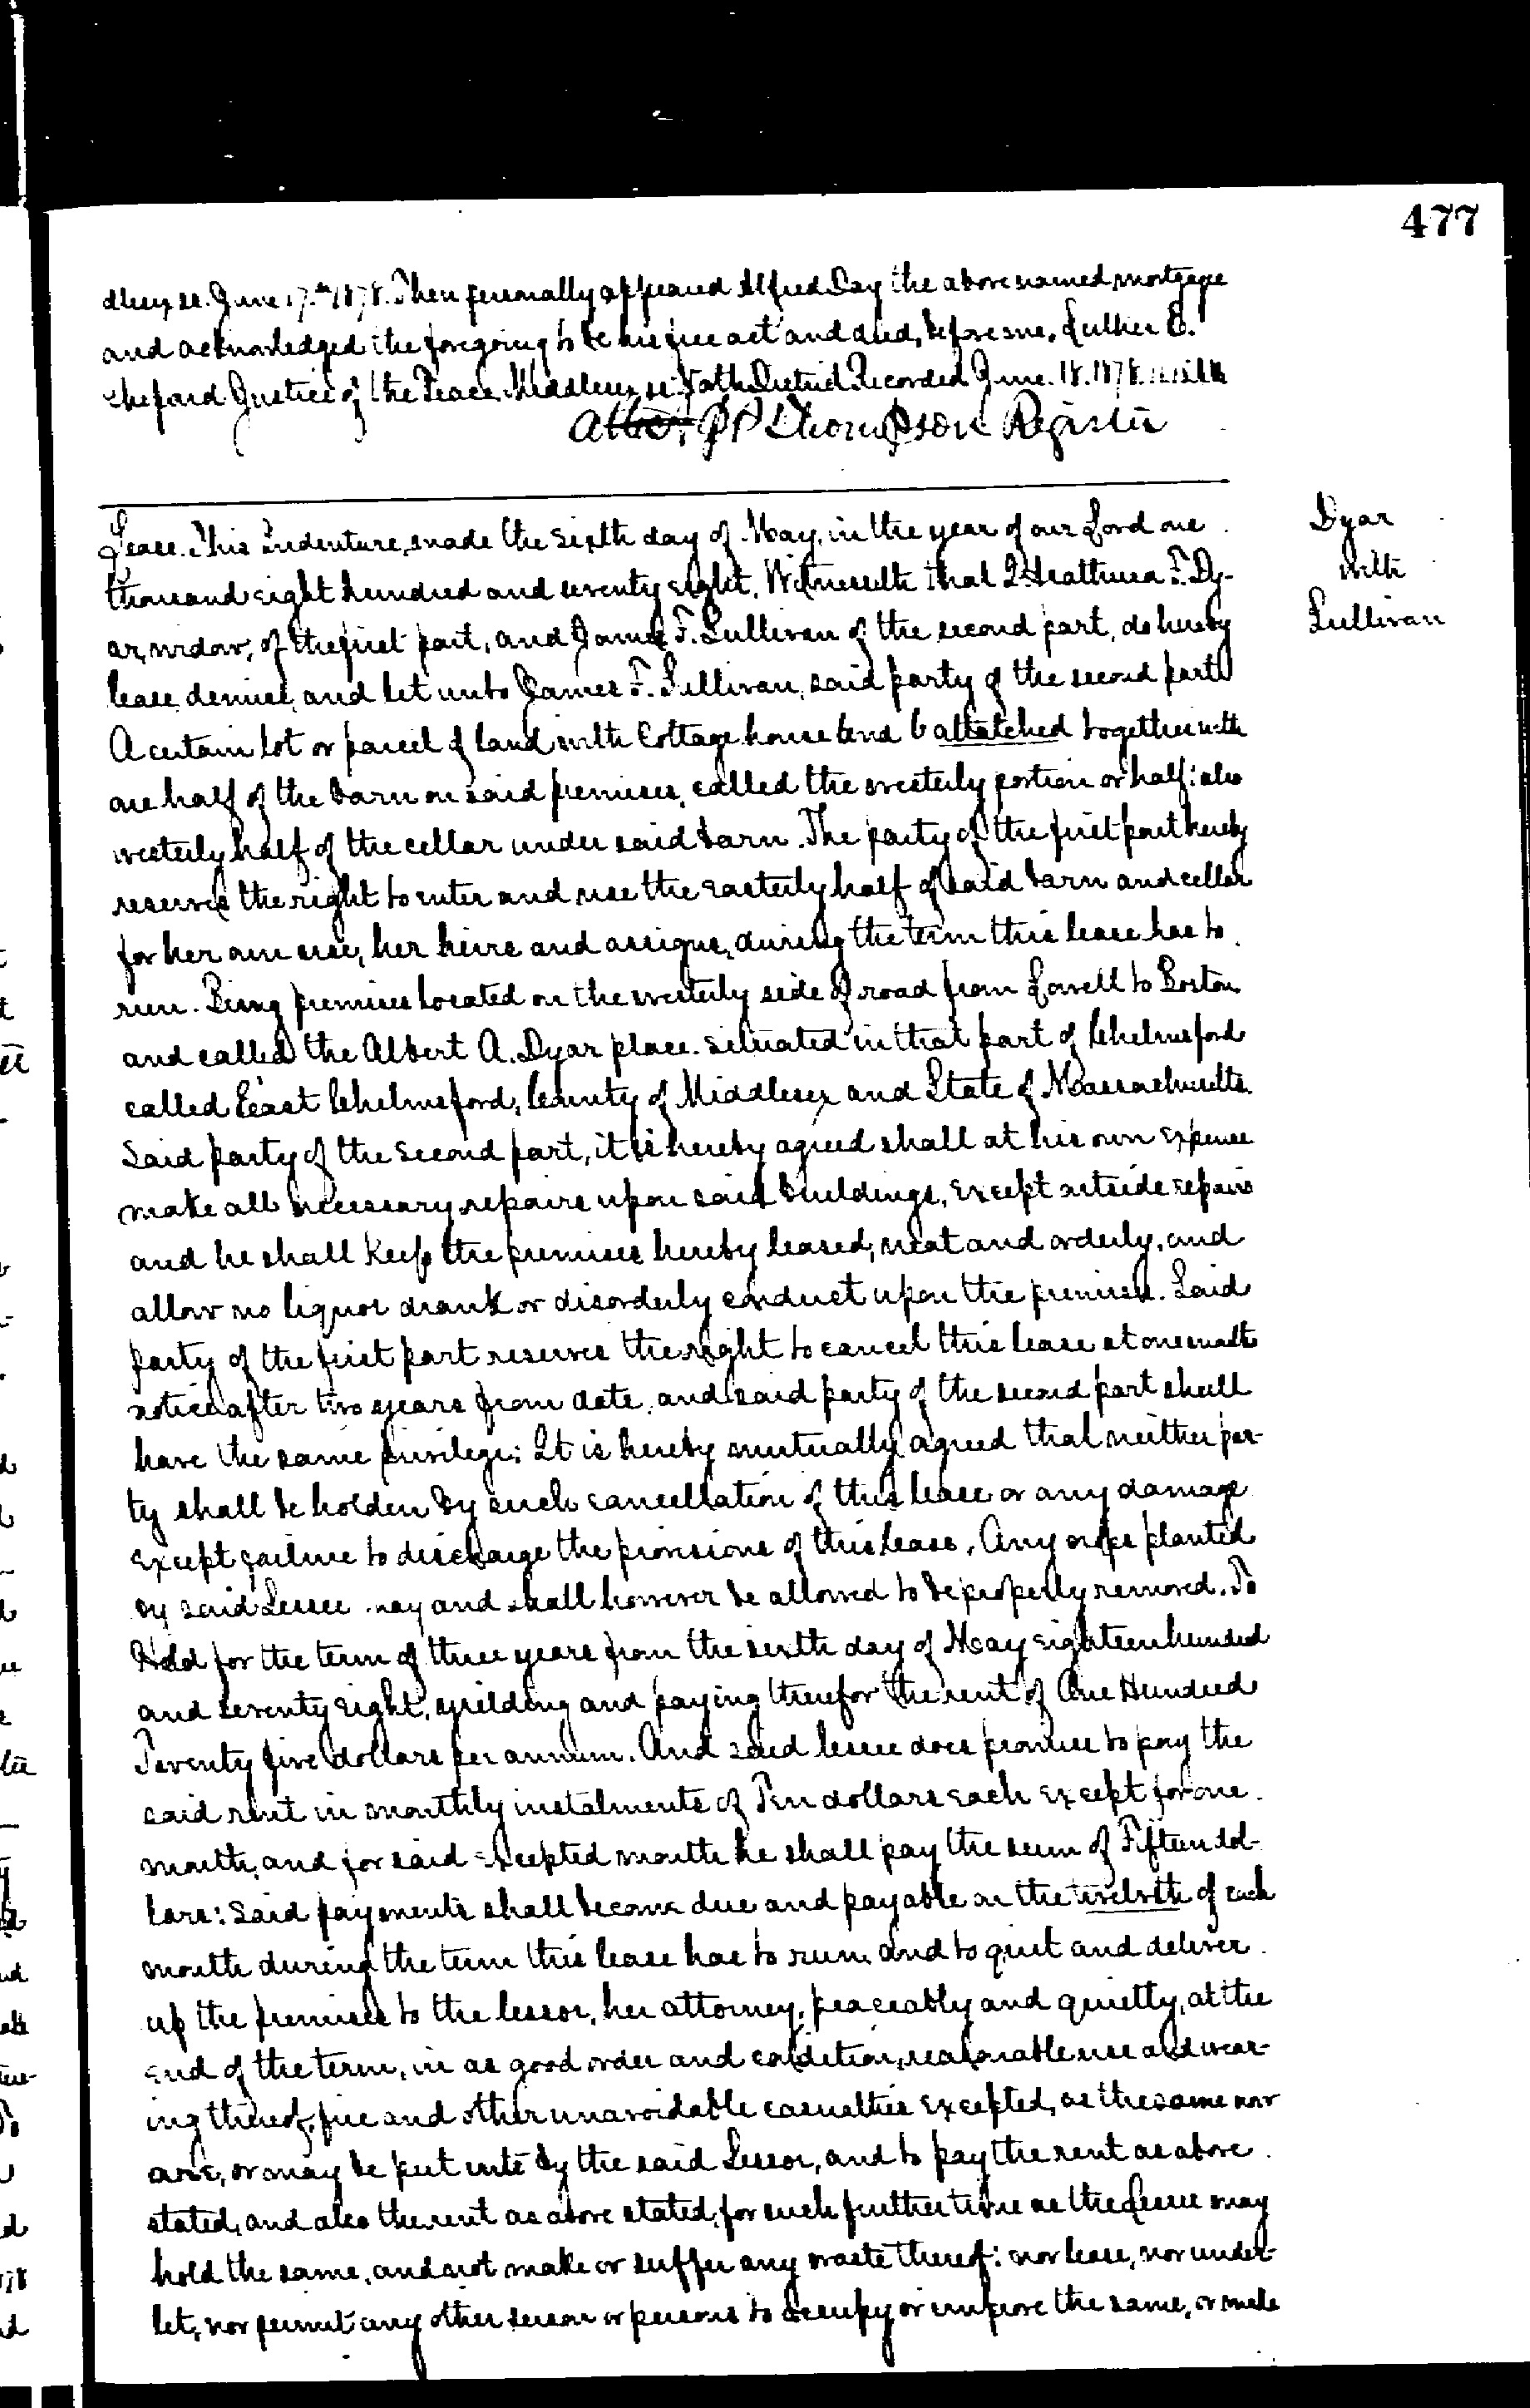 477
dlesex ss. June 17th 1878. Then personally appeared Alfred Day the above named mortgagee
and acknowledged the foregoing to be his free act and deed, before me, Luther E.
Shepard Justice of the Peace. Middlesex ss. North District Recorded June. 18. 1878.
Attest, Thompson Register
Dyar
with
Sullivan
Lease. This Indenture, made the sixth day of May, in the year of our Lord one
thousand eight hundred and seventy eight. Witnesseth that I F. Dy-
ar, widow, of the first part, and James F. Sullivan of the second part, do hereby
lease, demise, and let unto James F. Sullivan, said party of the second part
A certain lot or parcel of land with Cottage house attatched together with
one half of the barn on said premises, called the westerly portion or half: also
westerly half of the cellar under said barn. The party of the first part hereby
reserves the right to enter and use the easterly half of said barn and cellar
for her own use, her heirs and assigns, during the term this lease has to
run. Being premises located on the westerly side of road from Lowell to Boston
and called the Albert A. Dyar place. situated in that part of Chelmsford
called East Chelmsford, County of Middlesex and State of Massachusetts.
Said party of the second part, it is hereby agreed shall at his own expense
make all necessary repairs upon said buildings, except outside repairs
and he shall keep the premises hereby leased, neat and orderly, and
allow no liquor drank or disorderly conduct upon the premises. Said
party of the first part reserves the right to cancel this lease at one months
notice after two years from date, and said party of the second part shall
have the same privilege: It is hereby mutually agreed that neither par-
ty shall be holden by such cancellation of this lease or any damage
except failure to discharge the provisions of this lease. Any crops planted
by said Lessee may and shall however be allowed to be properly removed. To
Hold for the term of three years from the sixth day of May eighteen hundred
and seventy eight, yeilding and paying therefor the rent of One Hundred
Twenty five dollars per annum. And said lessee does promise to pay the
said rent in monthly instalments of Ten dollars each except for one
month, and for said excepted month he shall pay the sum of Fifteen dol-
lars: Said payments shall become due and payable on the twelvth of each
month during the term this lease has to run and to quit and deliver
up the premises to the lessor, her attorney, peaceably and quietly, at the
end of the term, in as good order and condition, reasonable use and wear-
ing thereof, fire and other unavoidable casualties excepted, as the same now
are, or may be put into by the said Lessor, and to pay the rent as above
stated, and also the rent as above stated, for such further time as the Lessee may
hold the same, and not make or suffer any waste thereof: nor lease, nor under-
let, nor permit any other person or persons to occupy or improve the same, or make